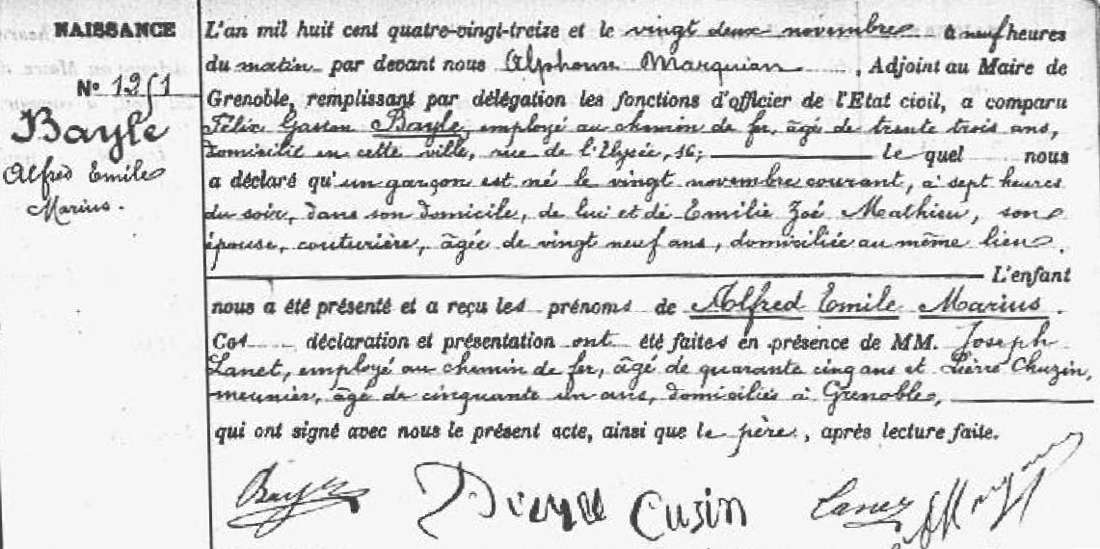 NAISSANCE
Nº 1251
Bayle
Alfred Emile
Marius.
L'an mil huit cent quatre-vingt-treize et le vingt deux novembre à neuf heures
du matin par devant nous Alphonse Marquian, Adjoint au Maire de
Grenoble, remplissant par délégation les fonctions d'officier de l'Etat civil, a comparu
Félix Gaston Bayle, employé au chemin de fer, âgé de trente trois ans,
domicilié en cette ville, rue de l'Elysée, 16; le quel nous
a déclaré qu'un garçon est né le vingt novembre courant, à sept heures
du soir, dans son domicile, de lui et de Emilie Zoé Mathieu, son
épouse, couturière, âgée de vingt neuf ans, domiciliée au même lieu.
L'enfant
nous a été présenté et a reçu les prénoms de Alfred Emile Marius.
Ces déclaration et présentation ont été faites en présence de MM. Joseph
Lanet, employé au chemin de fer, âgé de quarante cinq ans et Pierre Chuzin,
meunier, âgé de cinquante un ans, domiciliés à Grenoble,
qui ont signé avec nous le présent acte, ainsi que le père, après lecture faite.
Bayle Cusin Lanet